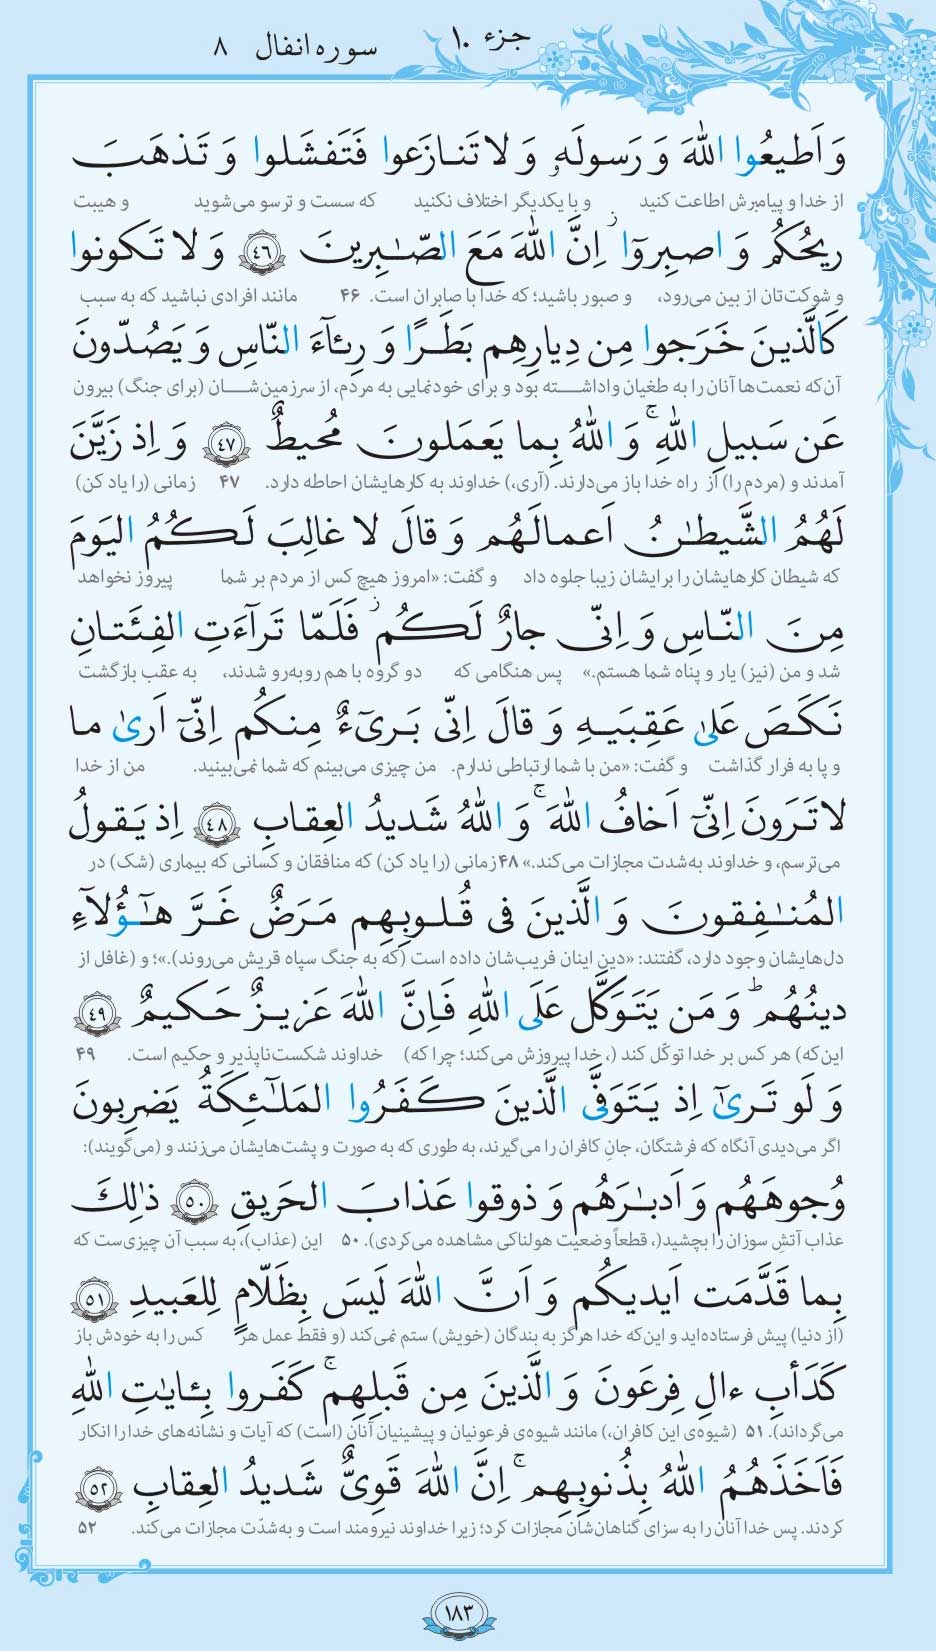 جزء ۱۰
سوره انفال ۸
وَ اَطیعُوا اللّٰهَ وَ رَسولَهٗ وَ لا تَنازَعوا فَتَفشَلوا وَ تَذهَبَ
از خدا و پیامبرش اطاعت کنید و با یکدیگر اختلاف نکنید که سست و ترسو می‌شوید و هیبت
ریحُکُم وَ اصبِروٓا ۚ اِنَّ اللّٰهَ مَعَ الصّٰبِرینَ ﴿٤٦﴾ وَ لا تَکونوا
و شوکت‌تان از بین می‌رود، و صبور باشید؛ که خدا با صابران است. ۴۶ مانند افرادی نباشید که به سبب
کَالَّذینَ خَرَجوا مِن دِیارِهِم بَطَرًا وَ رِئآءَ النّاسِ وَ یَصُدّونَ
آن‌که نعمت‌ها آنان را به طغیان واداشته بود و برای خودنمایی به مردم، از سرزمین‌شان (برای جنگ) بیرون
عَن سَبیلِ اللّٰهِ ۚ وَ اللّٰهُ بِما یَعمَلونَ مُحیطٌ ﴿٤٧﴾ وَ اِذ زَیَّنَ
آمدند و (مردم را) از راه خدا باز می‌دارند. (آری،) خداوند به کارهایشان احاطه دارد. ۴۷ زمانی (را یاد کن)
لَهُمُ الشَّیطٰنُ اَعمالَهُم وَ قالَ لا غالِبَ لَکُمُ الیَومَ
که شیطان کارهایشان را برایشان زیبا جلوه داد و گفت: «امروز هیچ کس از مردم بر شما پیروز نخواهد
مِنَ النّاسِ وَ اِنّی جارٌ لَکُم ۖ فَلَمّا تَرآءَتِ الفِئَتانِ
شد و من (نیز) یار و پناه شما هستم.» پس هنگامی که دو گروه با هم روبه‌رو شدند، به عقب بازگشت
نَکَصَ عَلیٰ عَقِبَیهِ وَ قالَ اِنّی بَریٓءٌ مِنکُم اِنّیٓ اَریٰ ما
و پا به فرار گذاشت و گفت: «من با شما ارتباطی ندارم. من چیزی می‌بینم که شما نمی‌بینید. من از خدا
لا تَرَونَ اِنّیٓ اَخافُ اللّٰهَ ۚ وَ اللّٰهُ شَدیدُ العِقابِ ﴿٤٨﴾ اِذ یَقولُ
می‌ترسم، و خداوند به‌شدت مجازات می‌کند.» ۴۸ زمانی (را یاد کن) که منافقان و کسانی که بیماری (شک) در
المُنٰفِقونَ وَ الَّذینَ فی قُلوبِهِم مَرَضٌ غَرَّ هٰٓؤُلآءِ
دل‌هایشان وجود دارد، گفتند: «دین اینان فریب‌شان داده است (که به جنگ سپاه قریش می‌روند).»؛ و (غافل از
دینُهُم ؕ وَ مَن یَتَوَکَّل عَلَی اللّٰهِ فَاِنَّ اللّٰهَ عَزیزٌ حَکیمٌ ﴿٤٩﴾
این‌که) هر کس بر خدا توکّل کند (، خدا پیروزش می‌کند؛ چرا که) خداوند شکست‌ناپذیر و حکیم است. ۴۹
وَ لَو تَریٰٓ اِذ یَتَوَفَّی الَّذینَ کَفَرُوا المَلٰٓئِکَةُ یَضرِبونَ
اگر می‌دیدی آنگاه که فرشتگان، جانِ کافران را می‌گیرند، به طوری که به صورت و پشت‌هایشان می‌زنند و (می‌گویند):
وُجوهَهُم وَ اَدبٰرَهُم وَ ذوقوا عَذابَ الحَریقِ ﴿٥٠﴾ ذٰلِکَ
عذاب آتشِ سوزان را بچشید(، قطعاً وضعیت هولناکی مشاهده می‌کردی). ۵۰ این (عذاب)، به سبب آن چیزی‌ست که
بِما قَدَّمَت اَیدیکُم وَ اَنَّ اللّٰهَ لَیسَ بِظَلّامٍ لِلعَبیدِ ﴿٥١﴾
(از دنیا) پیش فرستاده‌اید و این‌که خدا هرگز به بندگان (خویش) ستم نمی‌کند (و فقط عمل هر کس را به خودش باز
کَدَأبِ ءالِ فِرعَونَ وَ الَّذینَ مِن قَبلِهِم ۚ کَفَروا بِـٔایٰتِ اللّٰهِ
می‌گرداند). ۵۱ (شیوه‌ی این کافران،) مانند شیوه‌ی فرعونیان و پیشینیان آنان (است) که آیات و نشانه‌های خدا را انکار
فَاَخَذَهُمُ اللّٰهُ بِذُنوبِهِم ۚ اِنَّ اللّٰهَ قَویٌّ شَدیدُ العِقابِ ﴿٥٢﴾
کردند. پس خدا آنان را به سزای گناهان‌شان مجازات کرد؛ زیرا خداوند نیرومند است و به‌شدّت مجازات می‌کند. ۵۲
۱۸۳